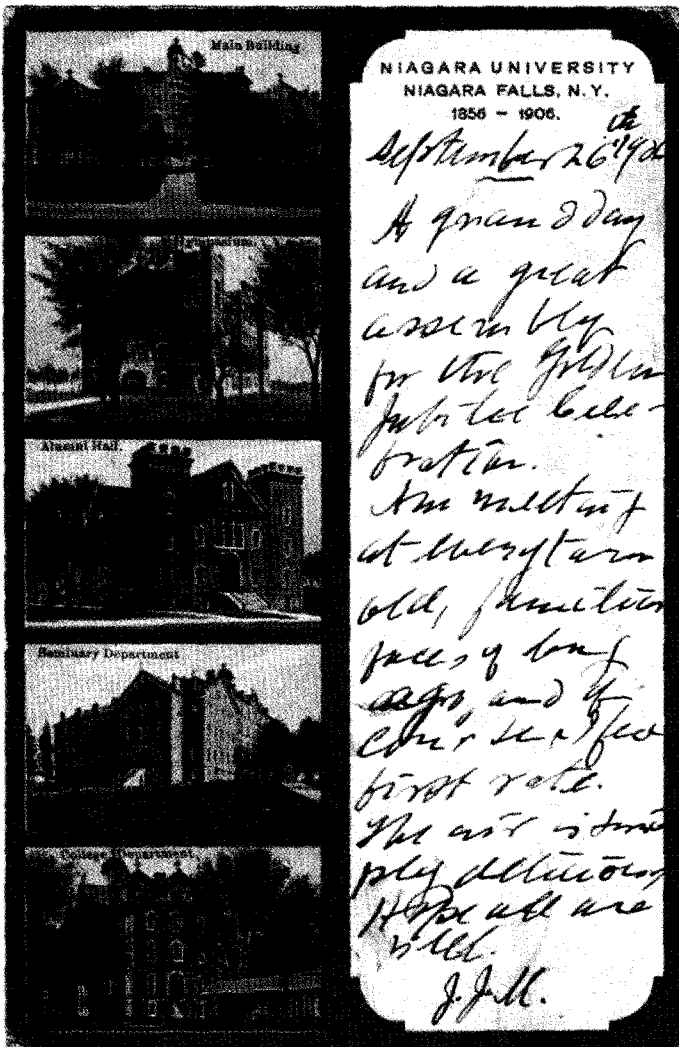 Main Building
Gymnasium.
Alumni Hall.
Seminary Department
College Department.
NIAGARA UNIVERSITY
NIAGARA FALLS, N.Y.
1856 – 1906.
September 26th 1906
A grand day
and a great
assembly
for the Golden
Jubilee Cele-
bration.
Am meeting
at every turn
old, familiar
faces of long
ago, and of
course I feel
first rate.
The air is sim-
ply delicious
Hope all are
well.
J. J. M.